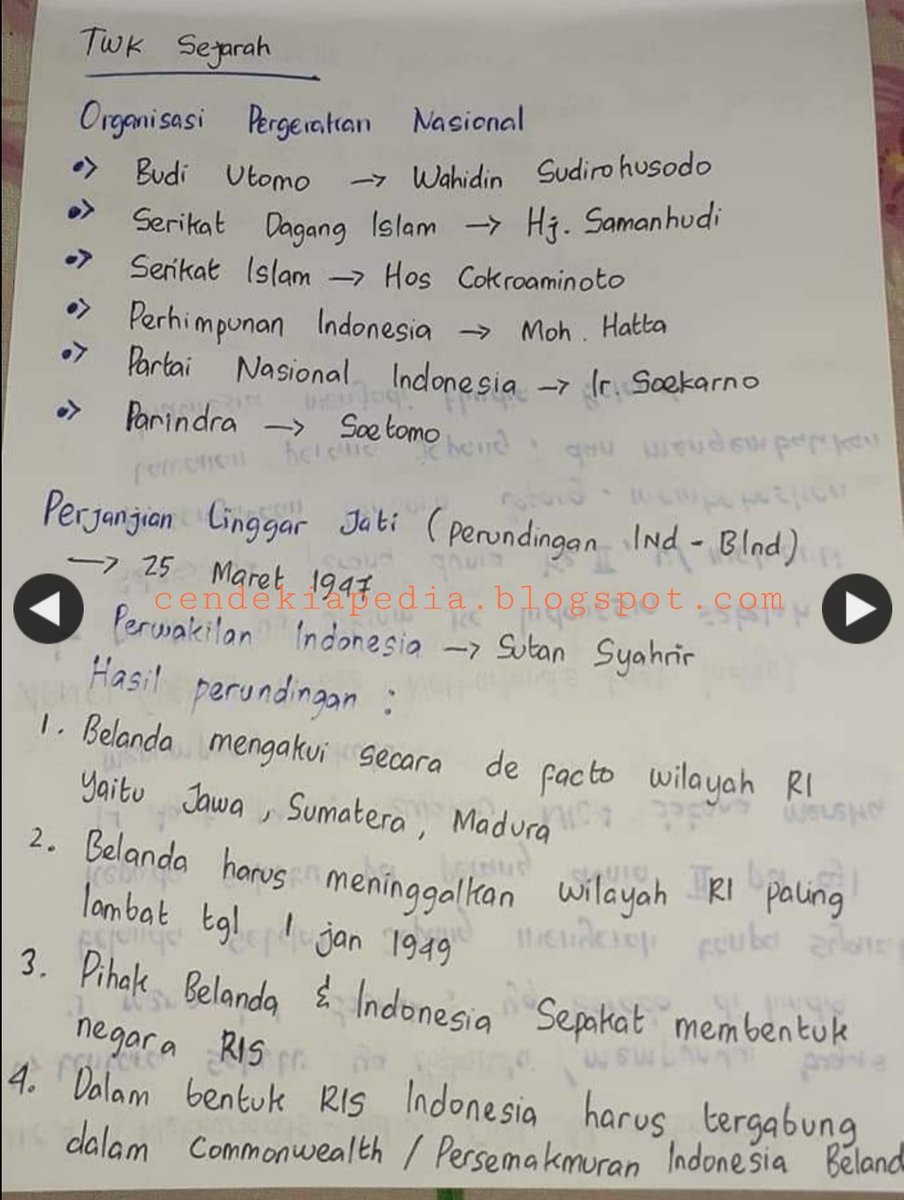 TWK Sejarah
Organisasi Pergerakan Nasional
Budi Utomo → Wahidin Sudirohusodo
Serikat Dagang Islam → Hj. Samanhudi
Serikat Islam → Hos Cokroaminoto
Perhimpunan Indonesia → Moh. Hatta
Partai Nasional Indonesia → Ir. Soekarno
Parindra → Soetomo
Perjanjian Linggar Jati (perundingan INd - Blnd)
→ 25 Maret 1947
cendekiapedia.blogspot.com
Perwakilan Indonesia → Sutan Syahrir
Hasil perundingan :
1. Belanda mengakui secara de facto wilayah RI
yaitu Jawa, Sumatera, Madura
2. Belanda harus meninggalkan wilayah RI paling
lambat tgl 1 jan 1949
3. Pihak Belanda & Indonesia Sepakat membentuk
negara RIS
4. Dalam bentuk RIS Indonesia harus tergabung
dalam Commonwealth / Persemakmuran Indonesia Beland